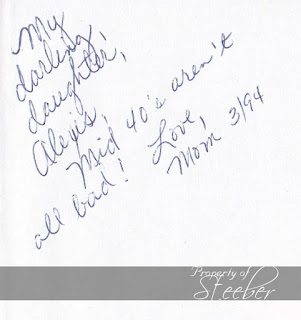 My
darling
daughter,
Alexis,
Mid 40's aren't
all bad!
Love,
Mom 3/94
Property of
Steeber